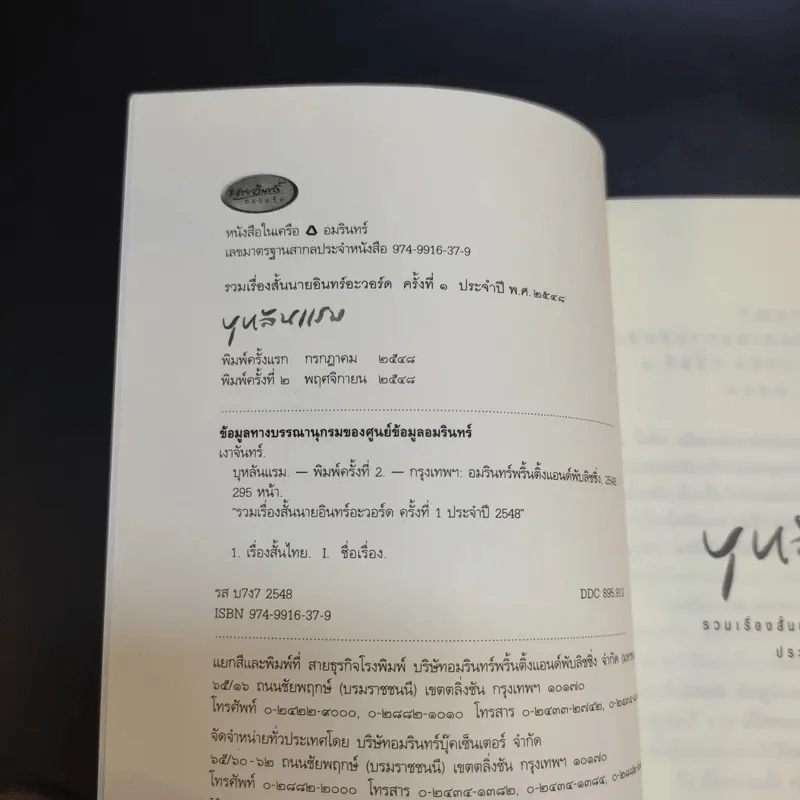 นายอินทร์
อะวอร์ด
หนังสือในเครือ อมรินทร์
เลขมาตรฐานสากลประจำหนังสือ 974-9916-37-9
รวมเรื่องสั้นนายอินทร์อะวอร์ด ครั้งที่ ๑ ประจำปี พ.ศ.๒๕๔๘
บุหลันแรม
พิมพ์ครั้งแรก กรกฎาคม ๒๕๔๘
พิมพ์ครั้งที่ ๒ พฤศจิกายน ๒๕๔๘
ข้อมูลทางบรรณานุกรมของศูนย์ข้อมูลอมรินทร์
เงาจันทร์.
บุหลันแรม. — พิมพ์ครั้งที่ 2. — กรุงเทพฯ: อมรินทร์พริ้นติ้งแอนด์พับลิชชิ่ง, 2548.
295 หน้า.
"รวมเรื่องสั้นนายอินทร์อะวอร์ด ครั้งที่ 1 ประจำปี 2548"
1. เรื่องสั้นไทย. I. ชื่อเรื่อง.
รส บ7ง7 2548 DDC 895.913
ISBN 974-9916-37-9
แยกสีและพิมพ์ที่ สายธุรกิจโรงพิมพ์ บริษัทอมรินทร์พริ้นติ้งแอนด์พับลิชชิ่ง จำกัด
๖๕/๑๖ ถนนชัยพฤกษ์ (บรมราชชนนี) เขตตลิ่งชัน กรุงเทพฯ ๑๐๑๗๐
โทรศัพท์ ๐-๒๔๒๒-๙๐๐๐, ๐-๒๘๘๒-๑๐๑๐ โทรสาร ๐-๒๔๓๓-๒๗๔๒,
จัดจำหน่ายทั่วประเทศโดย บริษัทอมรินทร์บุ๊คเซ็นเตอร์ จำกัด
๖๕/๖๐-๖๒ ถนนชัยพฤกษ์ (บรมราชชนนี) เขตตลิ่งชัน กรุงเทพฯ ๑๐๑๗๐
โทรศัพท์ ๐-๒๘๘๒-๒๐๐๐ โทรสาร ๐-๒๔๓๔-๑๓๘๒, ๐-๒๔๓๔-๑๓๘๔,
รวมเรื่องสั้น